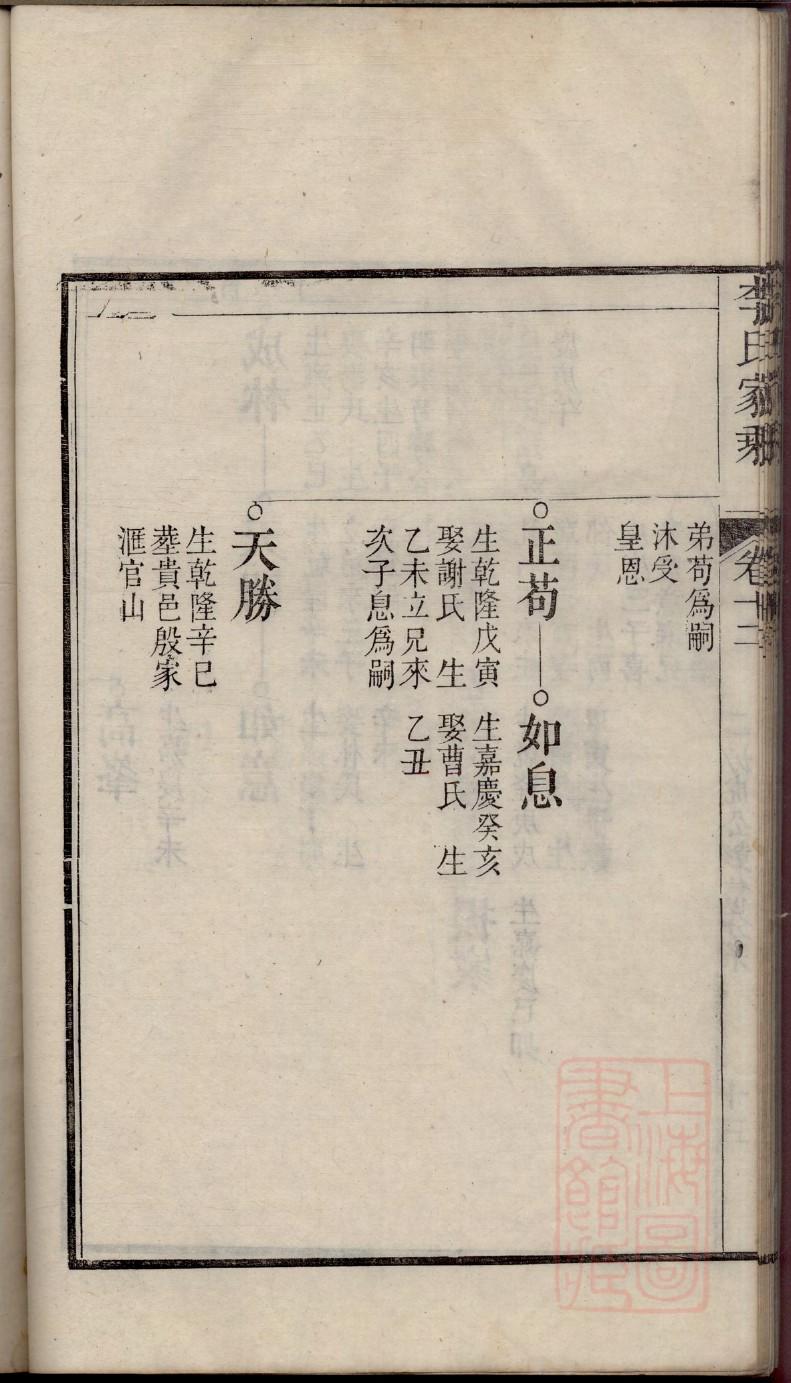 李氏家乘
卷十二
弟苟爲嗣
沐受
皇恩
正苟
生乾隆戊寅
娶謝氏 生
乙未立兄來
次子息爲嗣
如息
生嘉慶癸亥
娶曹氏 生
乙丑
天勝
生乾隆辛巳
塟貴邑殷家
滙官山
上海圖
書館藏